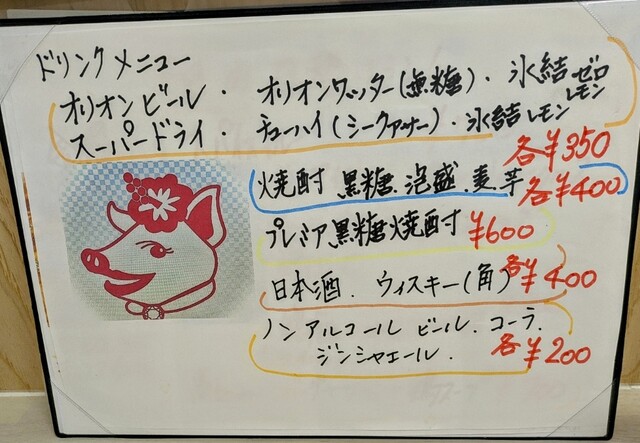 ドリンクメニュー
オリオンビール・オリオンワッター(無糖)・氷結ゼロレモン
スーパードライ・チューハイ(シークァサー)・氷結レモン
各¥350
焼酎 黒糖.泡盛.麦.芋 各¥400
プレミア黒糖焼酎 ¥600
日本酒. ウィスキー(角) 各¥400
ノンアルコールビール.コーラ.
ジンジャエール. 各¥200